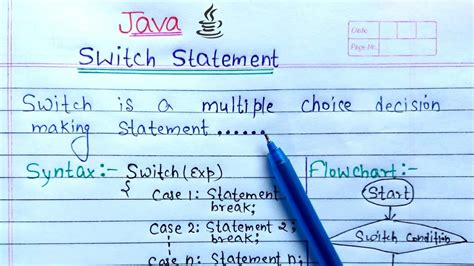 Java
Date
Page No.
Switch Statement
Switch is a multiple choice decision
making Statement ......
Syntax:- Switch (Exp)
{
Case 1: Statement
break;
Case 2: Statement 2;
break;
Case n: Statement n;
Flowchart:-
Start
Switch Condition